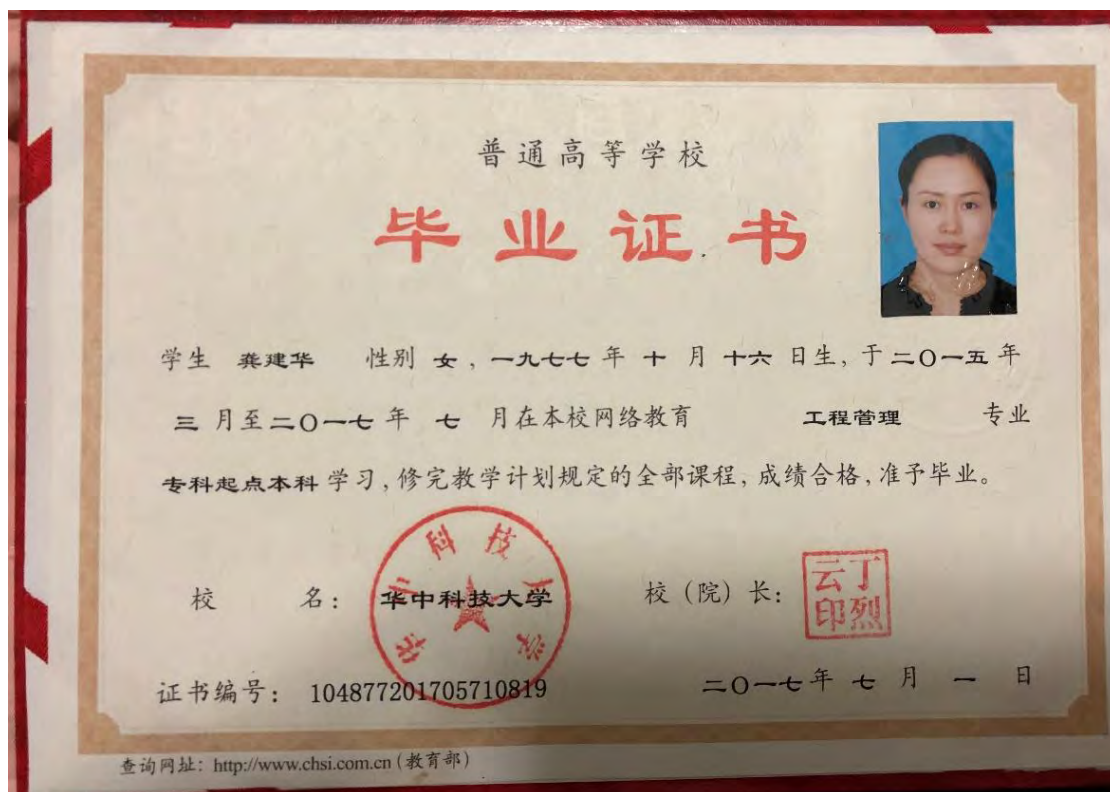 普通高等学校
毕业证书
学生 龚建华 性别 女，一九七七年 十 月 十六 日生，于二〇一五年
三 月至二〇一七年 七 月在本校网络教育 工程管理 专业
专科起点本科 学习，修完教学计划规定的全部课程，成绩合格，准予毕业。
华中科技大学
校 名： 华中科技大学 校（院）长： 丁烈云印
证书编号： 104877201705710819 二〇一七年 七 月 一 日
查询网址：http://www.chsi.com.cn（教育部）